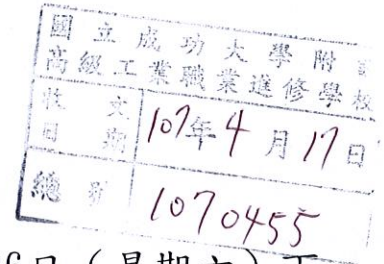 國立成功大學附設
高級工業職業進修學校
收文
日期
107年4月17日
總號
1070455
6日(星期六)下